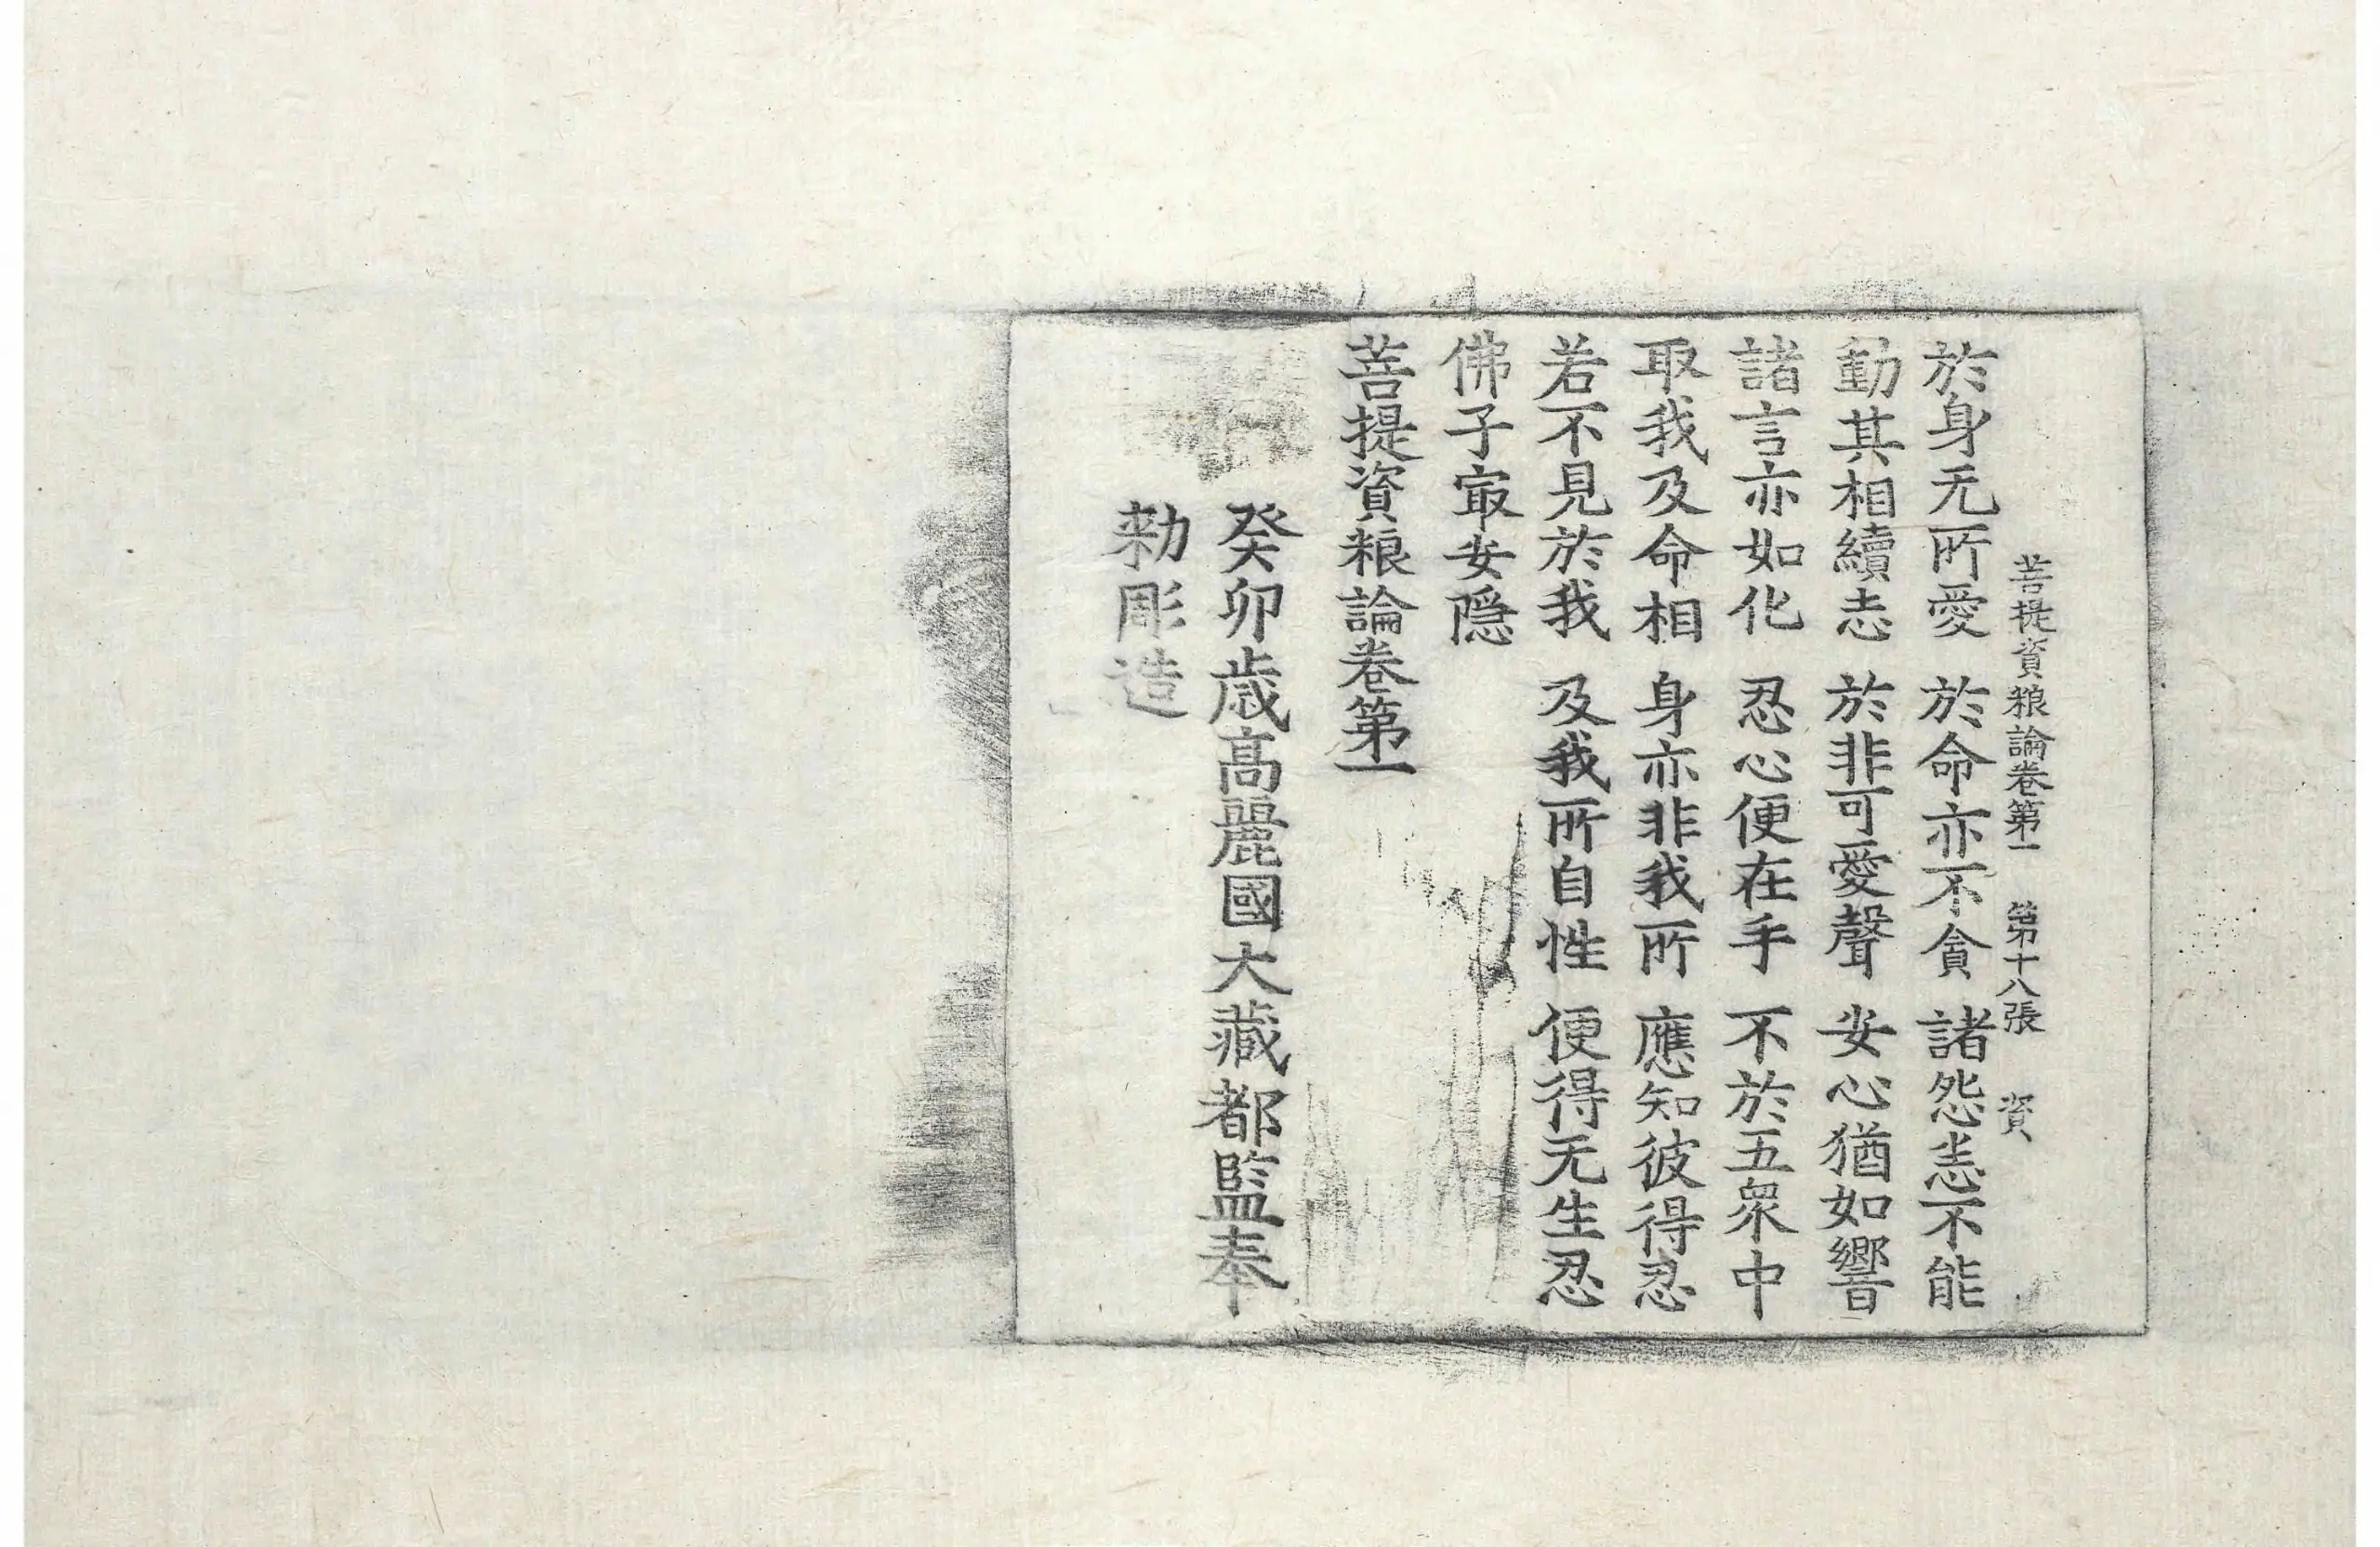 菩提資粮論卷第一 第十八張 資
於身无所愛 於命亦不貪 諸怨恚不能
動其相續恚 於非可愛聲 安心猶如響
諸言亦如化 忍心便在手 不於五衆中
取我及命相 身亦非我所 應知彼得忍
若不見於我 及我所自性 便得无生忍
佛子㝡安隱
菩提資粮論卷第一
癸卯歲高麗國大藏都監奉
勅彫造